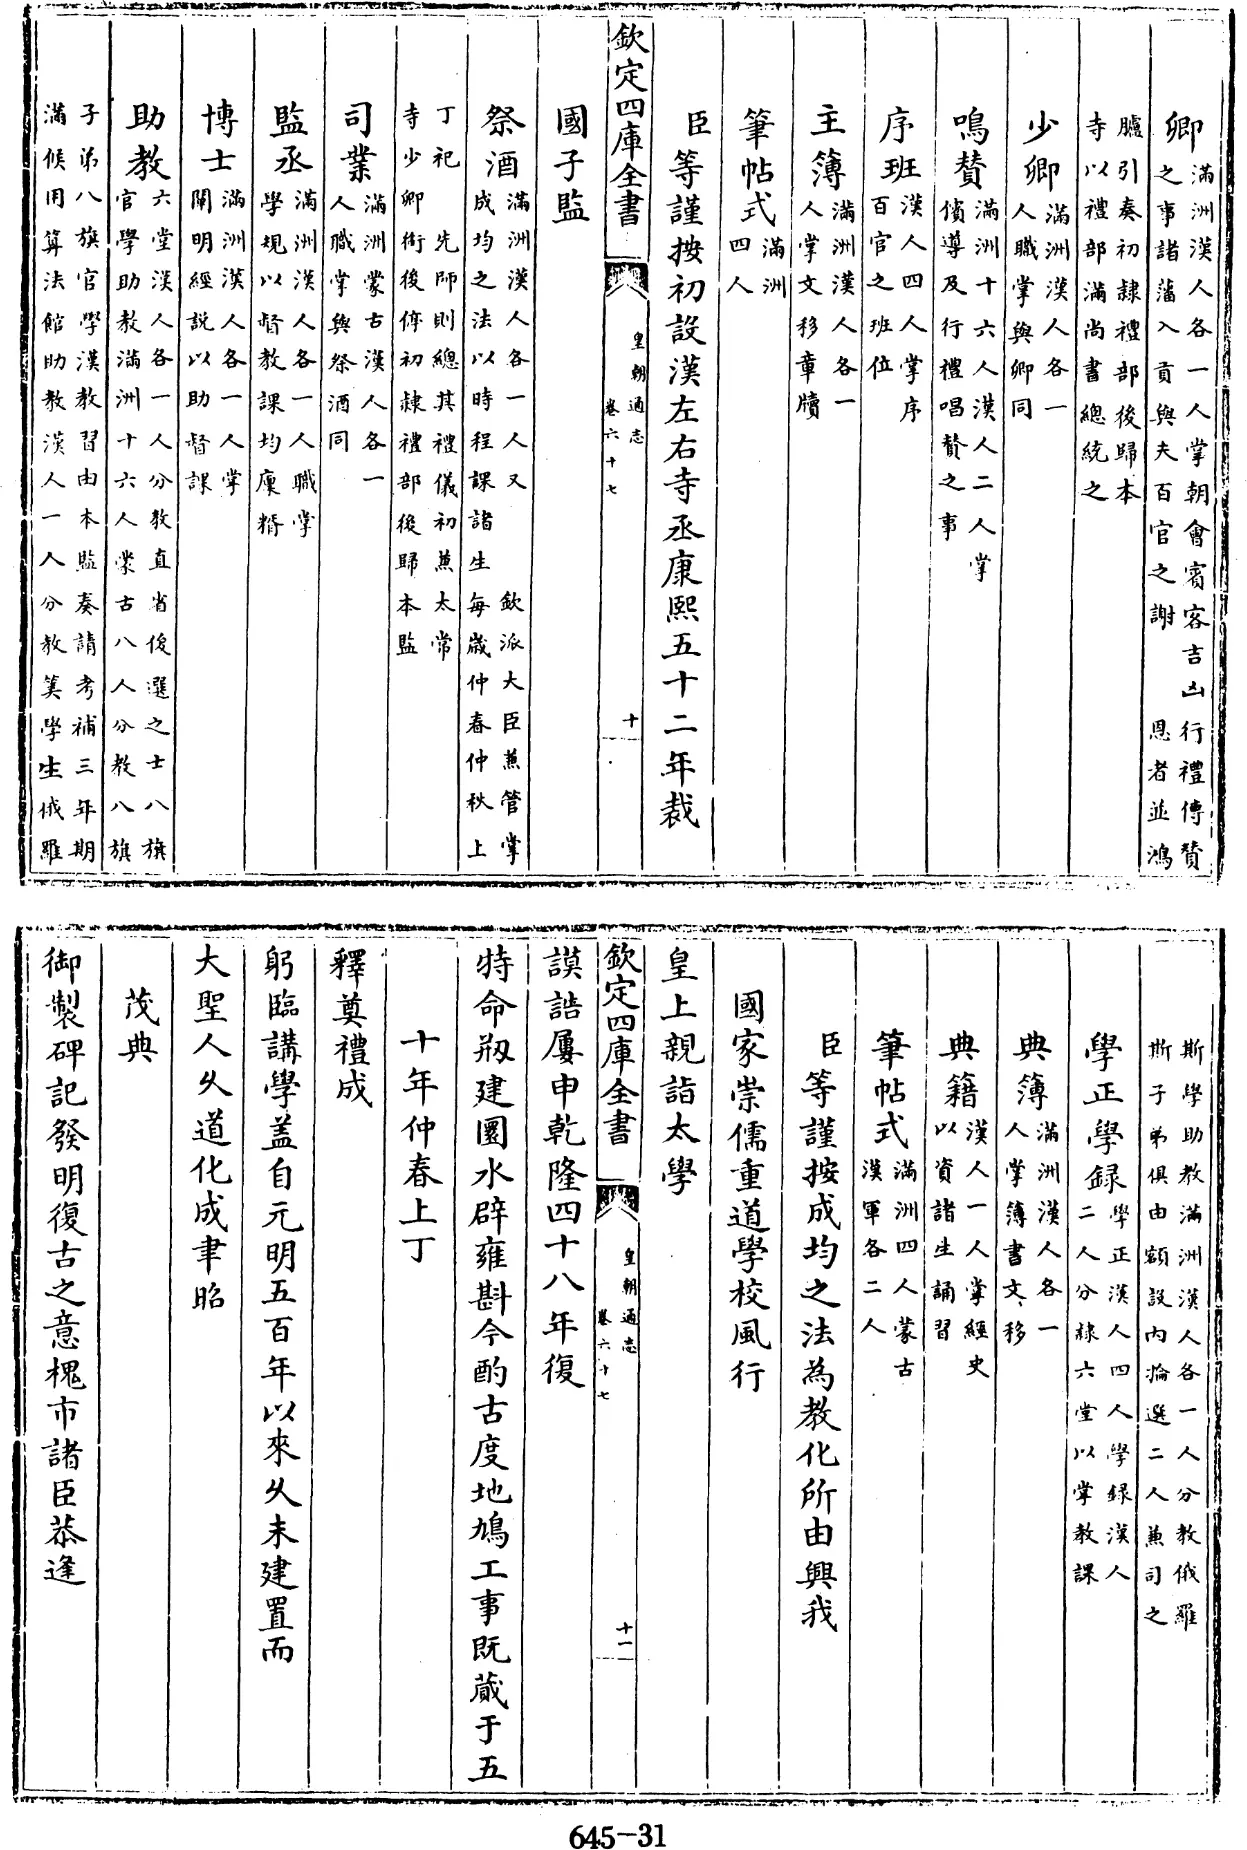 卿滿洲漢人各一人掌朝會賓客吉凶行禮傳贊
之事諸藩入貢與夫百官之謝 恩者並鴻
臚引奏初隷禮部後歸本
寺以禮部滿尚書總統之
少卿滿洲漢人各一
人職掌與卿同
鳴贊滿洲十六人漢人二人掌
儐導及行禮唱贊之事
序班漢人四人掌序
百官之班位
主簿滿洲漢人各一
人掌文移章牘
筆帖式滿洲
四人
臣等謹按初設漢左右寺丞康熙五十二年裁
欽定四庫全書
皇朝通志
卷六十七
十
國子監
祭酒滿洲漢人各一人又 欽派大臣兼管掌
成均之法以時程課諸生每歲仲春仲秋上
丁祀 先師則總其禮儀初兼太常
寺少卿銜後停初隷禮部後歸本監
司業滿洲蒙古漢人各一
人職掌與祭酒同
監丞滿洲漢人各一人職掌
學規以督教課均廩糈
博士滿洲漢人各一人掌
闡明經說以助督課
助教六堂漢人各一人分教直省俊選之士八旗
官學助教滿洲十六人蒙古八人分教八旗
子弟八旗官學漢教習由本監奏請考補三年期
滿候用算法館助教漢人一人分教算學生俄羅
斯學助教滿洲漢人各一人分教俄羅
斯子弟俱由額設內揄選二人兼司之
學正學録學正漢人四人學録漢人
二人分隷六堂以掌教課
典簿滿洲漢人各一
人掌簿書文移
典籍漢人一人掌經史
以資諸生誦習
筆帖式滿洲四人蒙古
漢軍各二人
臣等謹按成均之法為教化所由興我
國家崇儒重道學校風行
皇上親詣太學
欽定四庫全書
皇朝通志
卷六十七
十一
謨誥屢申乾隆四十八年復
特命剏建圜水辟雍斟今酌古度地鳩工事既蕆于五
十年仲春上丁
釋奠禮成
躬臨講學盖自元明五百年以來久未建置而
大聖人久道化成聿昭
茂典
御製碑記發明復古之意槐市諸臣恭逢
645-31